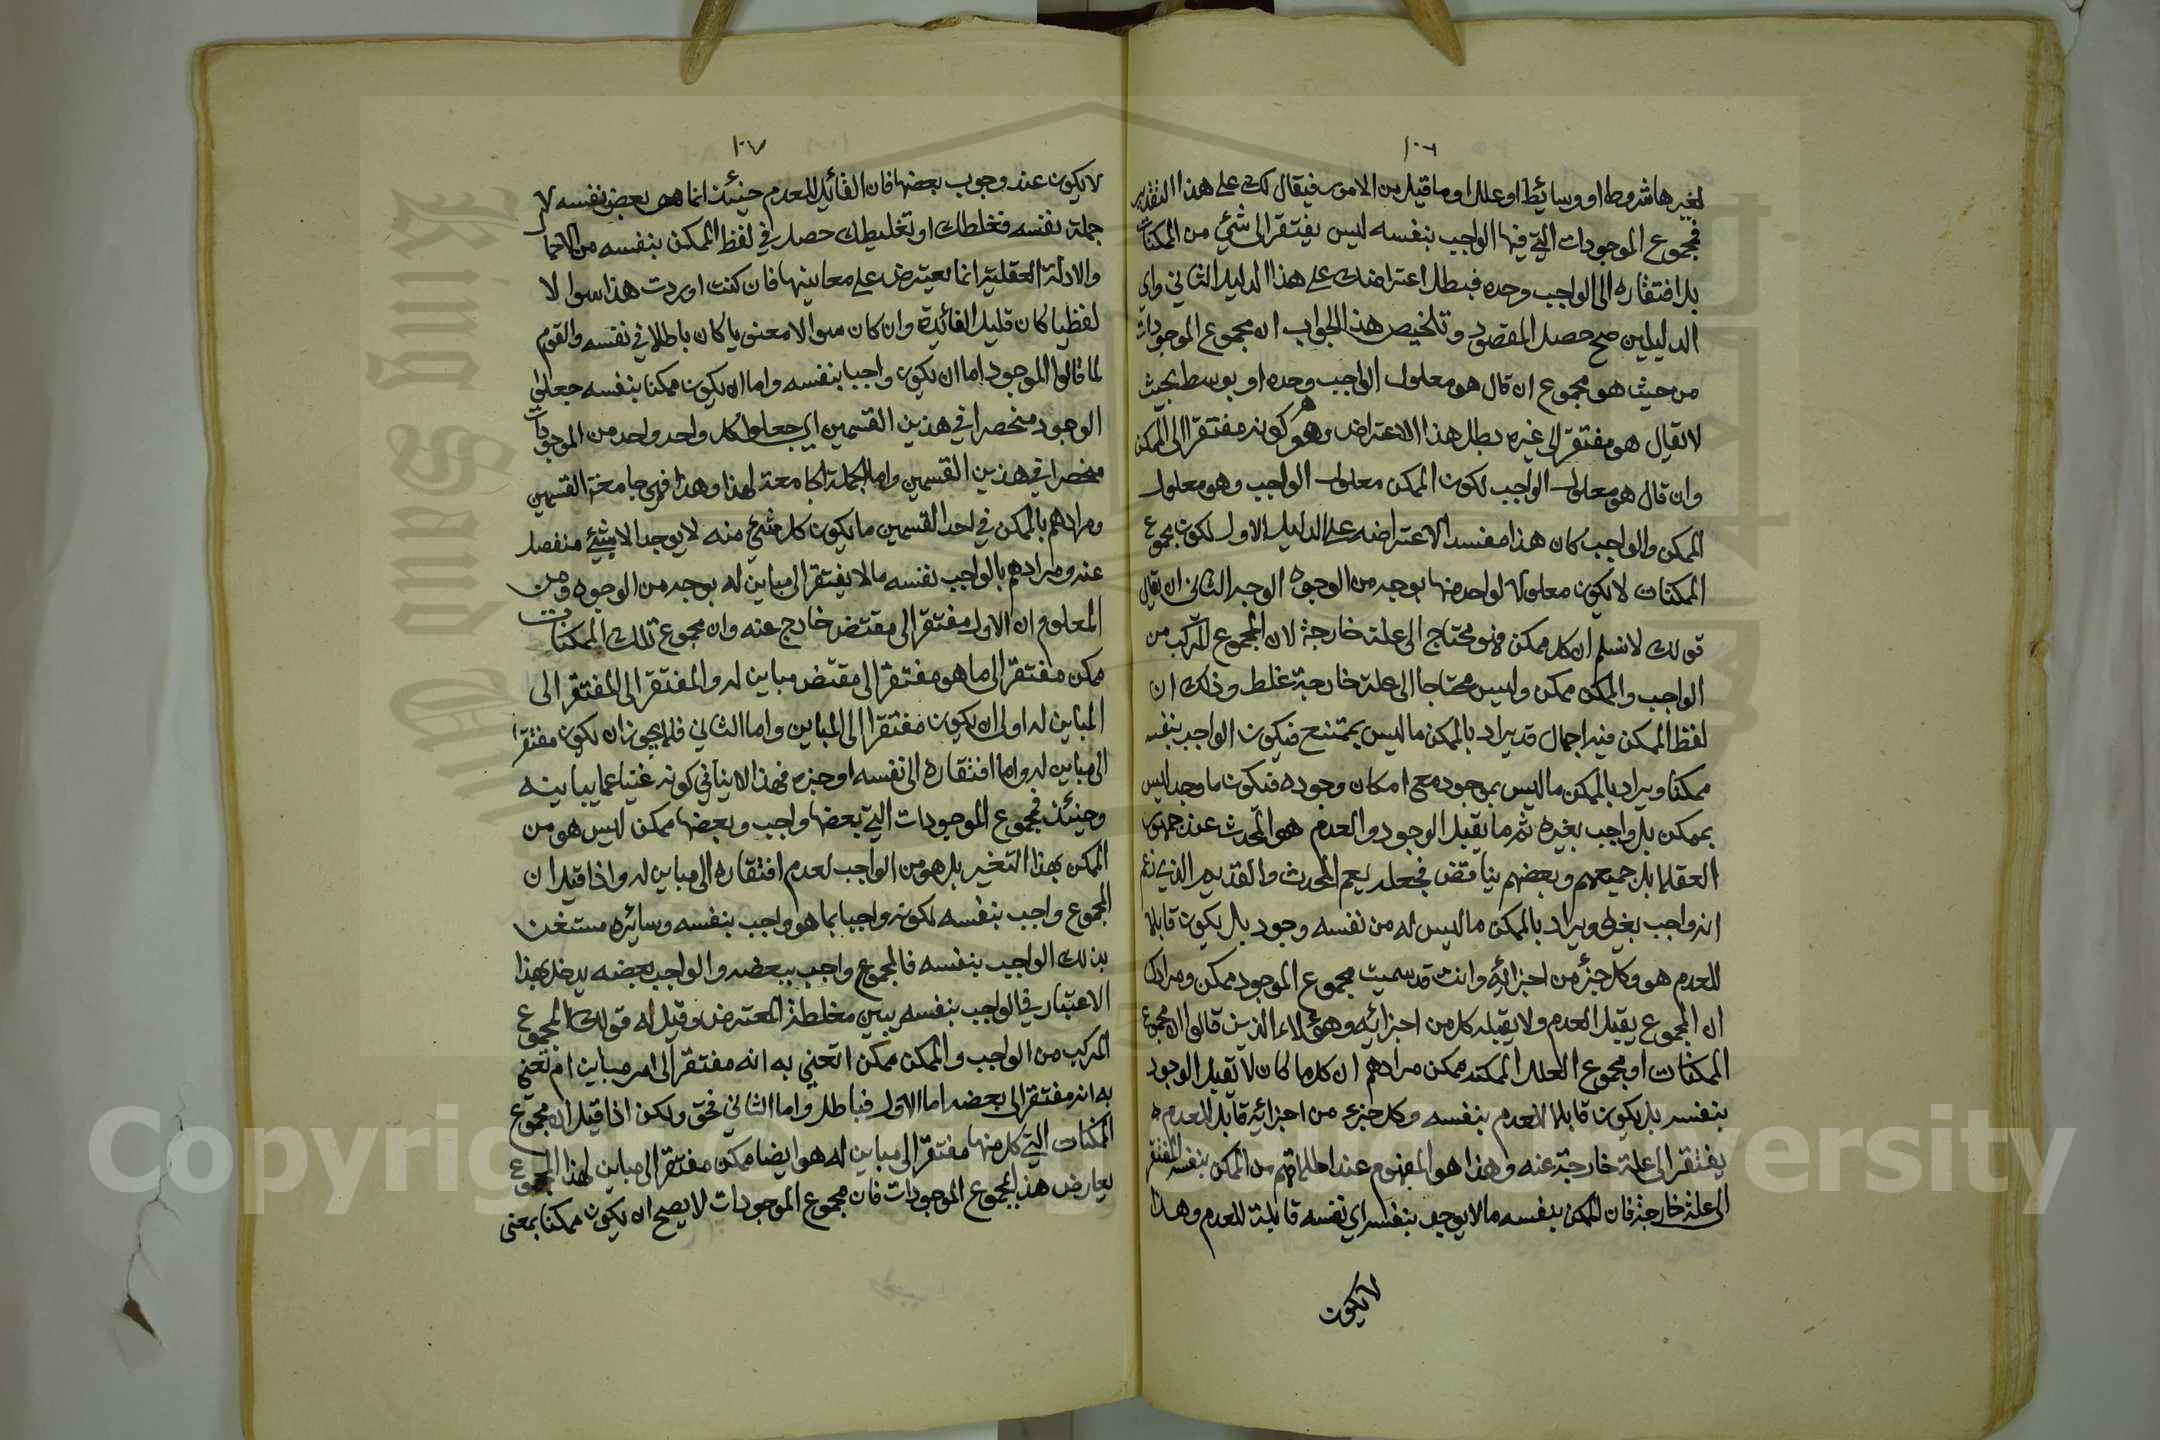 ١٠٦
لغيرها شروطا او وسائط او عللا او ما قيل من الامور فيقال لك على هذا التقدير
فمجموع الموجودات التي فيها الواجب بنفسه ليس يفتقر الى شئ من الممكنات
بل افتقاره الى الواجب وحده فبطل اعتراضك على هذا الدليل الثاني واي
الدليلين صح حصل المقصود وتلخيص هذا الجواب ان مجموع الموجودات
من حيث هو مجموع ان قال هو معلول الواجب وحده او بوسط بحيث
لا يقال هو مفتقر الى غيره بطل هذا الاعتراض وهو كونه مفتقرا الى الممكن
وان قال هو معلول الواجب لكون الممكن معلول الواجب وهو معلول
الممكن والواجب كان هذا مفسدا لاعتراضه على الدليل الاول لكون مجموع
الممكنات لا يكون معلولا لواحد منها بوجه من الوجوه الوجه الثاني ان يقال
قولك لا نسلم ان كل ممكن فهو محتاج الى علة خارجة لان المجموع المركب من
الواجب والممكن ممكن وليس محتاجا الى علة خارجة غلط وذلك ان
لفظ الممكن فيه اجمال قد يراد بالممكن ما ليس بممتنع فيكون الواجب بنفسه
ممكنا ويراد بالممكن ما ليس بموجود مع امكان وجوده فيكون ما وجد ليس
بممكن بل واجب بغيره ثم ما يقبل الوجود والعدم هو المحدث عند جمهور
العقلا بل جميعهم وبعضهم يناقض فجعله يعم المحدث والقديم الذي زعم
انه واجب بغيره ويراد بالممكن ما ليس له من نفسه وجود بل يكون قابلا
للعدم هو وكل جزء من اجزائه وانت قد سميت مجموع الموجود ممكن ومرادك
ان المجموع يقبل العدم ولا يقبله كل من اجزائه وهؤلاء الذين قالوا ان مجموع
الممكنات او مجموع العلل الممكنه ممكن مرادهم ان كل ما كان لا يقبل الوجود
بنفسه بل يكون قابلا للعدم بنفسه وكل جزء من اجزائه قابل للعدم
يفتقر الى علة خارجة عنه وهذا هو المفهوم عند اطلاقهم من الممكن بنفسه المفتقر
الى علة خارجة فان الممكن بنفسه ما لا يوجد بنفسه اي نفسه قابلة للعدم وهذا
لا يكون
١٠٧
لا يكون عند وجوب بعضها فان القابل للعدم حينئذ انما هو بعض نفسه لا
جملة نفسه فغلطك او تغليطك حصل في لفظ الممكن بنفسه من الاجما
والادلة العقلية انما يعترض على معانيها فان كنت اوردت هذا سوالا
لفظيا كان قليل الفائدة وان كان سوالا معنويا كان باطلا في نفسه والقوم
لما قالوا الموجود اما ان يكون واجبا بنفسه واما ان يكون ممكنا بنفسه جعلوا
الوجود منحصرا في هذين القسمين اي جعلوا كل واحد واحد من الموجودات
منحصرا في هذين القسمين واما الجملة الجامعة لهذا وهذا فهي جامعة القسمين
ومرادهم بالممكن في احد القسمين ما يكون كل شئ منه لا يوجد الا بشئ منفصل
عنه ومرادهم بالواجب نفسه ما لا يفتقر الى مباين له بوجه من الوجوه ومن
المعلوم ان الاول مفتقر الى مقتض خارج عنه وان مجموع تلك الممكنات
ممكن مفتقر الى ما هو مفتقر الى مقتض مباين له والمفتقر الى المفتقر الى
المباين له اولى ان يكون مفتقرا الى المباين واما الثاني فلا يجوز ان يكون مفتقرا
الى مباين له واما افتقاره الى نفسه او جزءه فهذا لا ينافي كونه غنيا عما يباينه
وحينئذ فمجموع الموجودات التي بعضها واجب وبعضها ممكن ليس هو من
الممكن بهذا التغير بل هو من الواجب لعدم افتقاره الى مباين له واذا قيل ان
المجموع واجب بنفسه لكونه واجبا بما هو واجب بنفسه وسائره مستغن
بذلك الواجب بنفسه فالمجموع واجب ببعضه والواجب بعضه يدخل بهذا
الاعتبار في الواجب بنفسه يبين مغلطة المعترض وقيل له قولك المجموع
المركب من الواجب والممكن ممكن اتعني به انه مفتقر الى امر مباين ام تعني
به انه مفتقر الى بعضه اما الاول فباطل واما الثاني فحق ولكن اذا قيل ان مجموع
الممكنات التي كل منها مفتقر الى مباين له هو ايضا ممكن مفتقر الى مباين لهذا المجموع
يعارض هذا بمجموع الموجودات فان مجموع الموجودات لا يصح ان يكون ممكنا بمعنى
Copyright © King Saud University